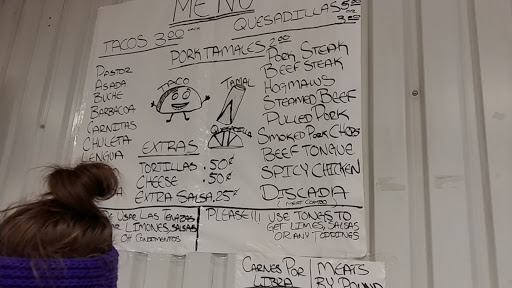 MENU
TACOS 3.00 each
QUESADILLAS 5.00
or
3.00
PORK TAMALES 2.00
PASTOR
ASADA
BUCHE
BARBACOA
CARNITAS
CHULETA
LENGUA
TACO
TAMAL
QUESADILLA
PORK STEAK
BEEF STEAK
HOGMAWS
STEAMED BEEF
PULLED PORK
SMOKED PORK CHOPS
BEEF TONGUE
SPICY CHICKEN
DISCADIA
(MEAT COMBO)
EXTRAS
TORTILLAS .50¢
CHEESE .50¢
EXTRA SALSA .25¢
USAR LAS TENAZAS
LIMONES, SALSAS
CONDIMENTOS
PLEASE!!! USE TONGS TO
GET LIMES, SALSAS
OR ANY TOPPINGS
CARNES POR
LIBRA
MEATS
BY POUND